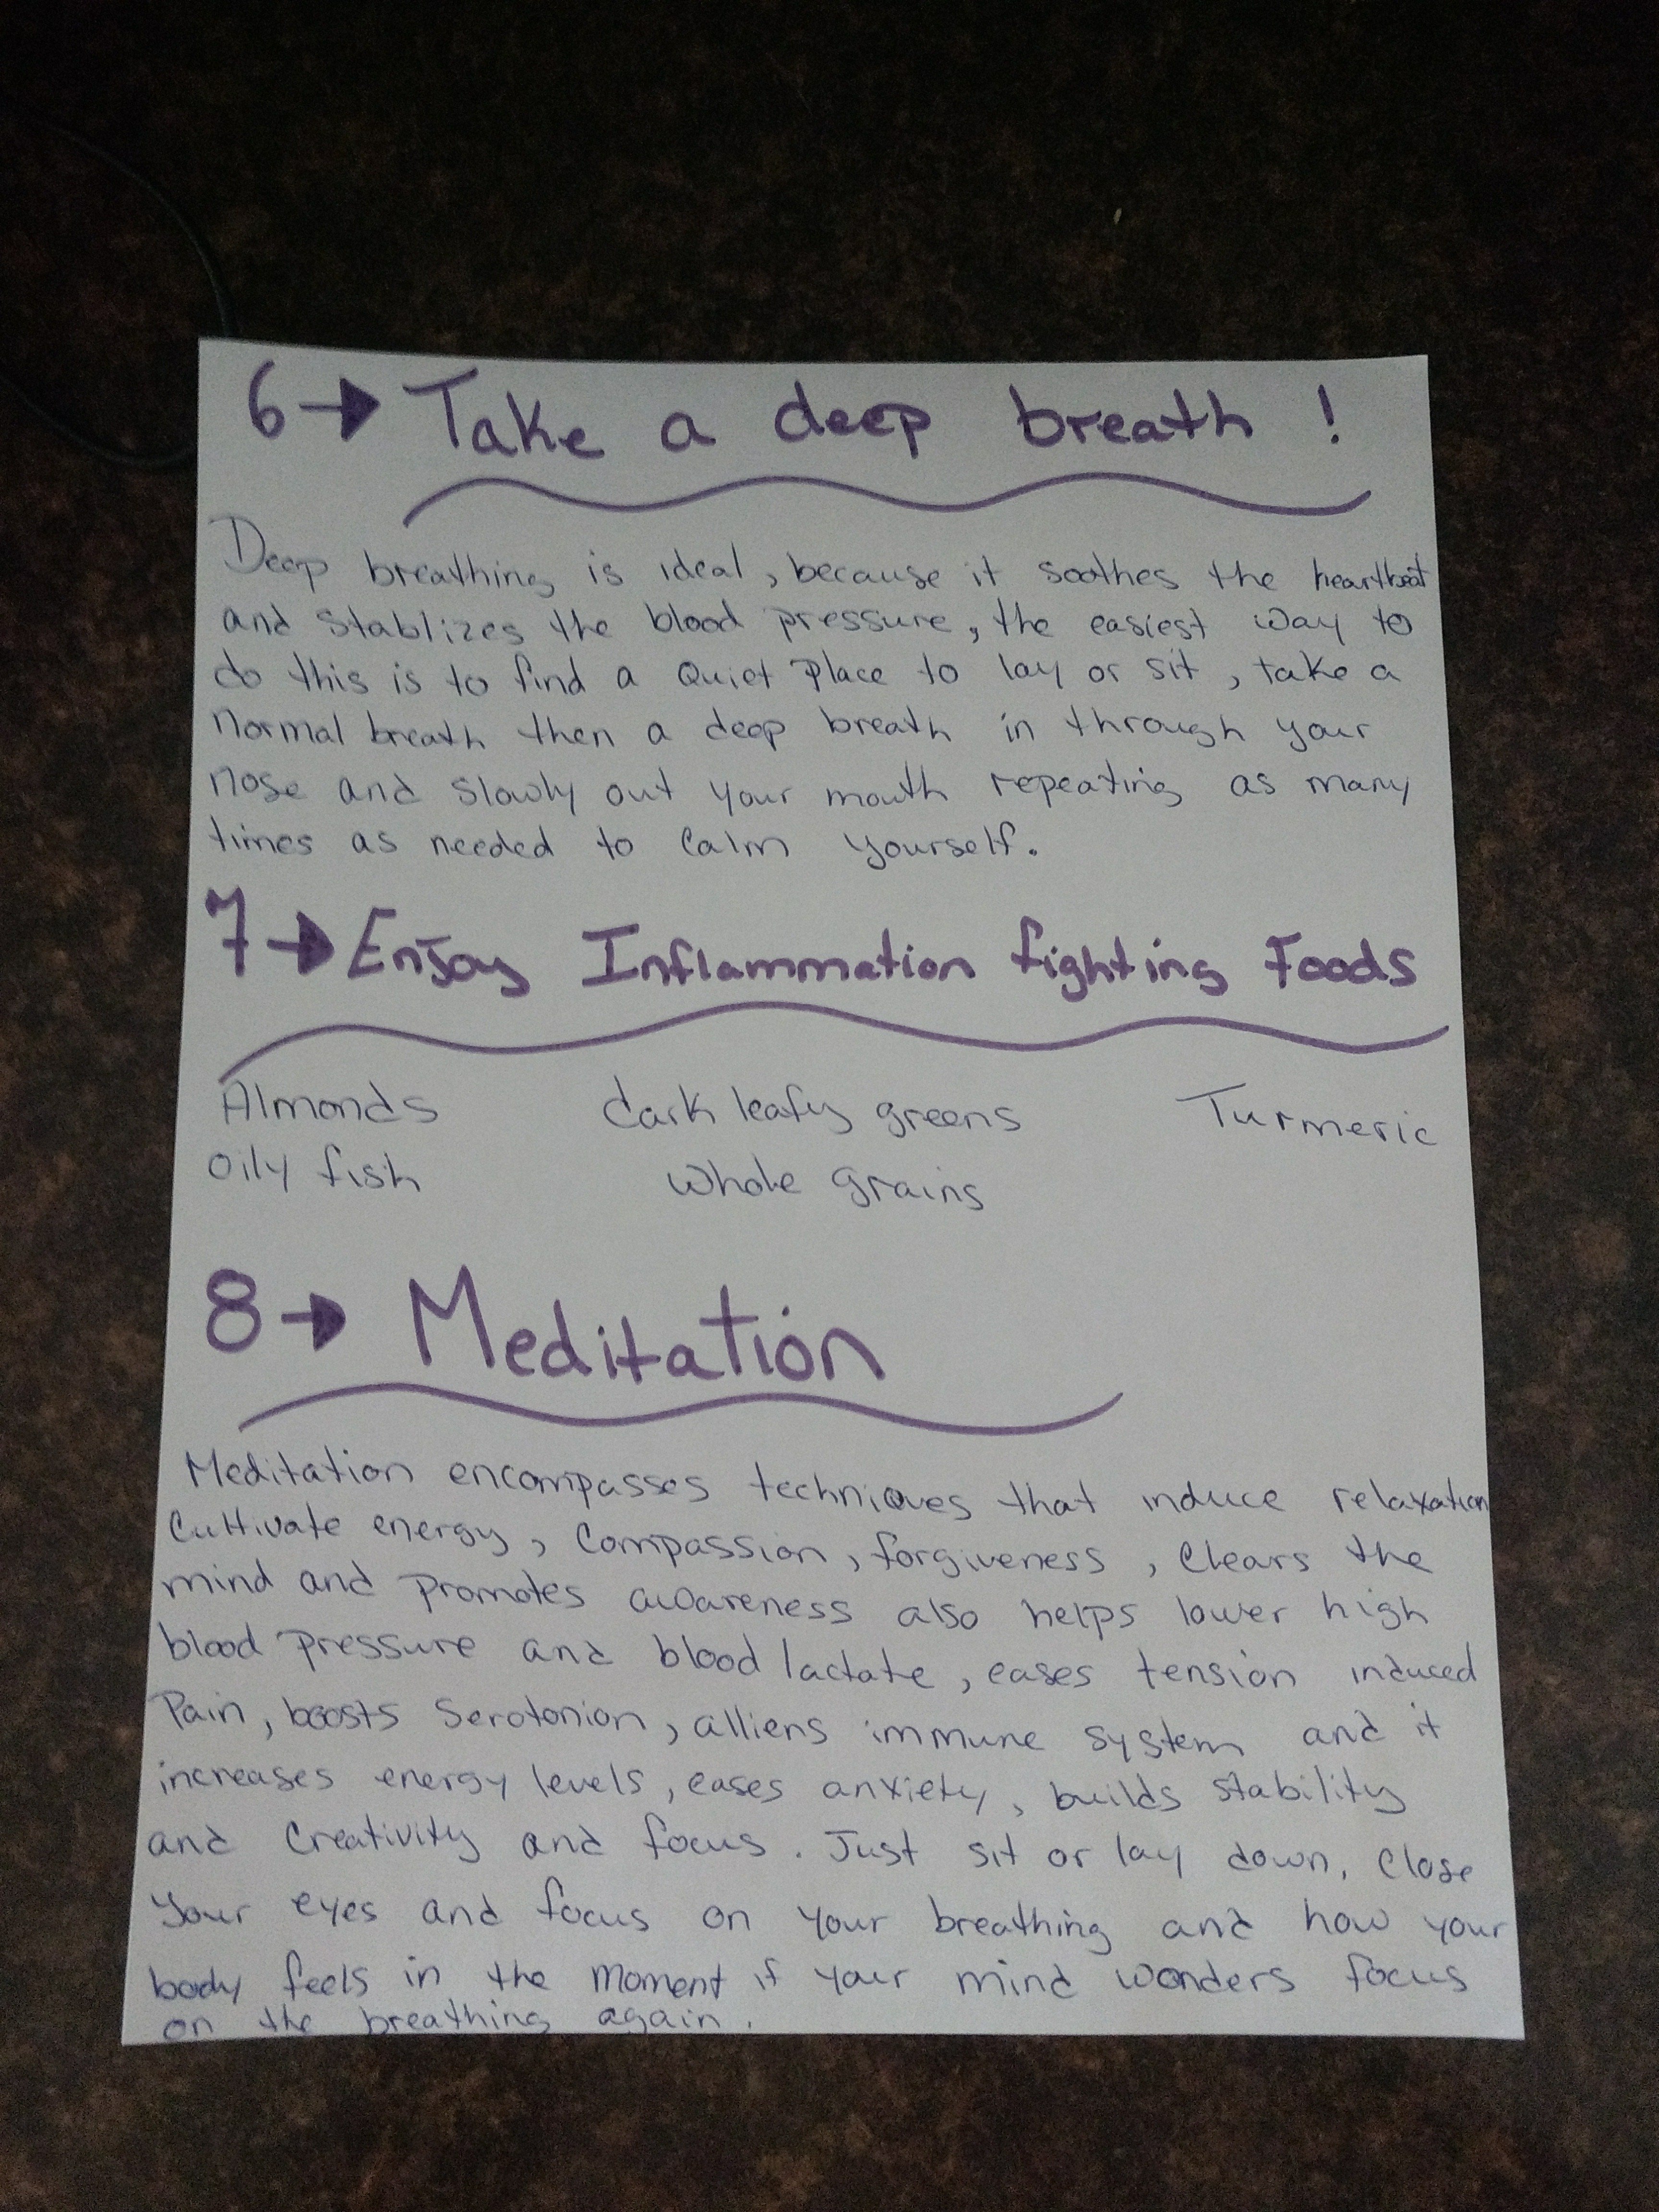 6→ Take a deep breath !
Deep breathing is ideal, because it soothes the heartbeat
and stablizes the blood pressure, the easiest way to
do this is to find a Quiet Place to lay or sit, take a
normal breath then a deep breath in through your
nose and slowly out your mouth repeating as many
times as needed to Calm yourself.
7→ Enjoy Inflammation fighting Foods
Almonds dark leafy greens Turmeric
oily fish whole grains
8→ Meditation
Meditation encompasses techniques that induce relaxation
Cultivate energy, Compassion, forgiveness, Clears the
mind and promotes awareness also helps lower high
blood pressure and blood lactate, eases tension induced
Pain, boosts Serotonion, alliens immune system and it
increases energy levels, eases anxiety, builds stability
and Creativity and focus. Just sit or lay down, Close
your eyes and focus on your breathing and how your
body feels in the moment if your mind wonders focus
on the breathing again.